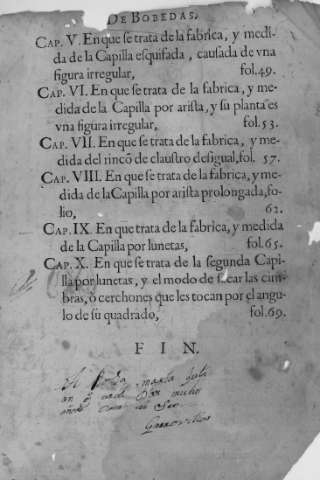 DE BOBEDAS.
CAP. V. En que se trata de la fabrica, y medi-
da de la Capilla esquifada, causada de vna
figura irregular, fol.49.
CAP. VI. En que se trata de la fabrica, y me-
dida de la Capilla por arista, y su planta es
vna figura irregular, fol.53.
CAP. VII. En que se trata de la fabrica, y me-
dida del rincõ de claustro desigual, fol. 57.
CAP. VIII. En que se trata de la fabrica, y me-
dida de la Capilla por arista prolongada, fo-
lio, 62.
CAP. IX. En que trata de la fabrica, y medida
de la Capilla por lunetas, fol.65.
CAP. X. En que se trata de la segunda Capi-
lla por lunetas, y el modo de sacar las cim-
bras, ò cerchones que les tocan por el angu-
lo de su quadrado, fol.69.
FIN.